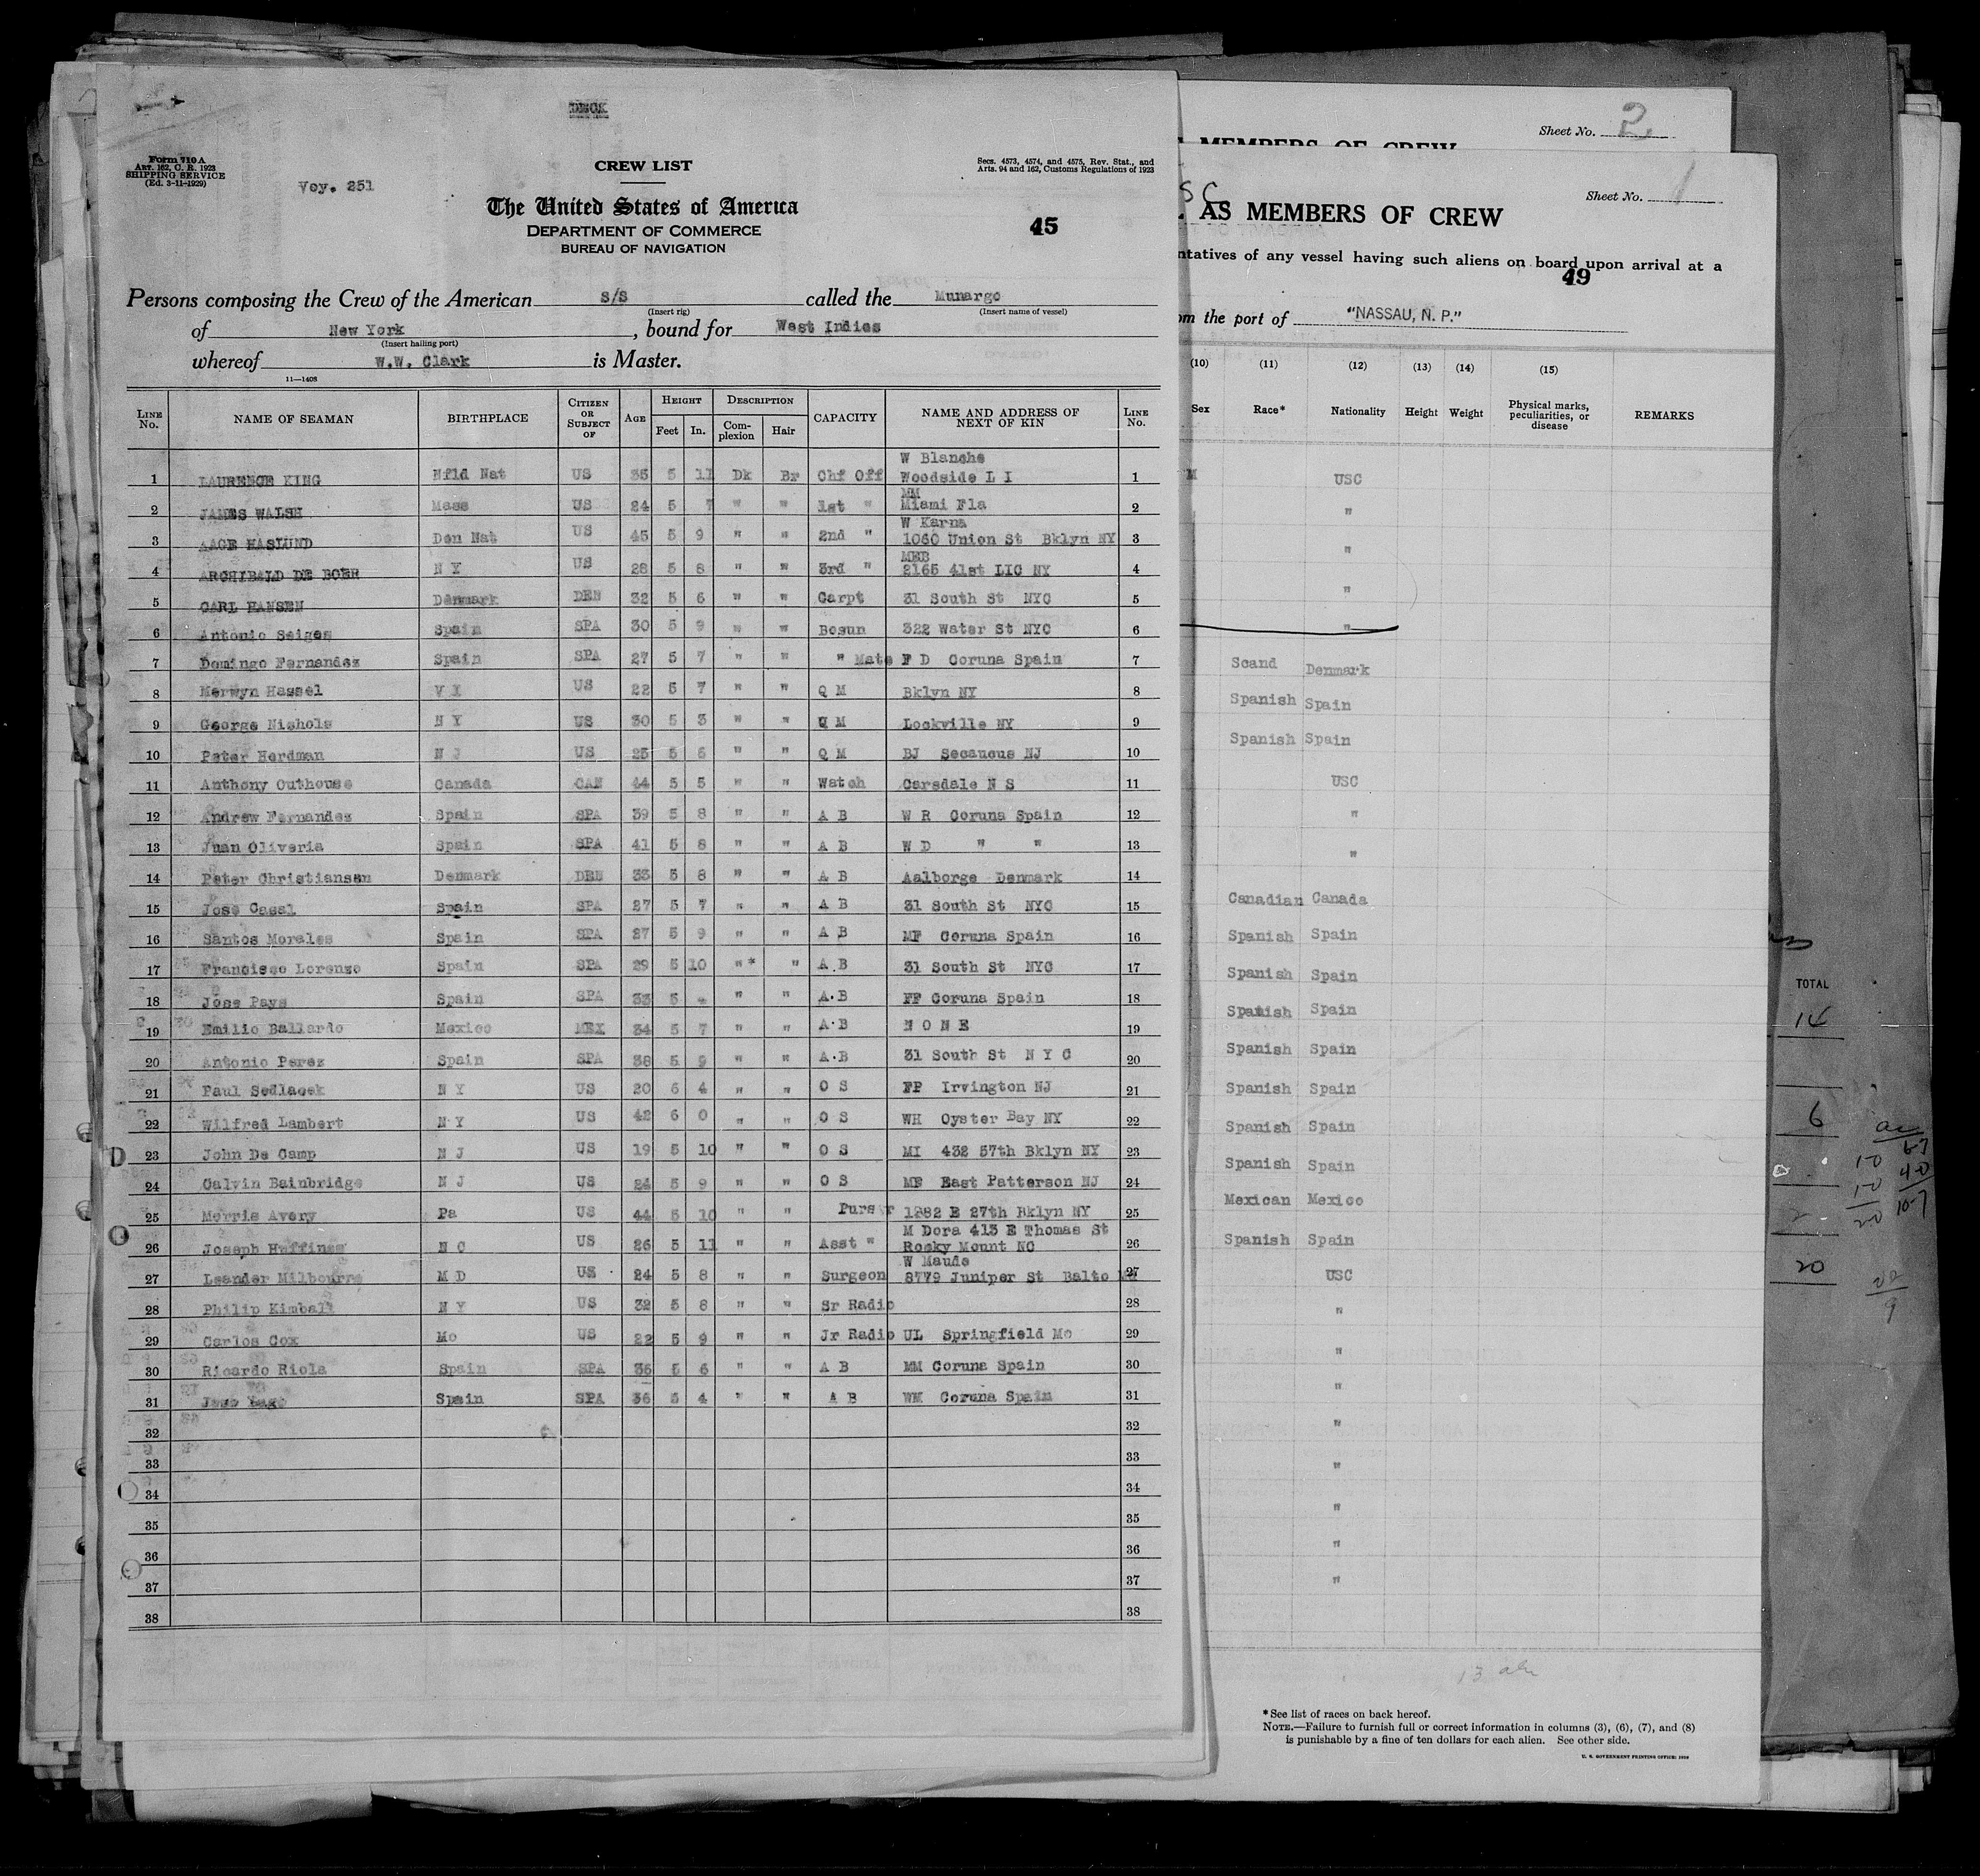 DECK
Form 710 A
ART. 162, C. R. 1923
SHIPPING SERVICE
(Ed. 3-11-1929)
Voy. 251
CREW LIST
Secs. 4573, 4574, and 4575, Rev. Stat., and
Arts. 94 and 162, Customs Regulations of 1923
The United States of America
DEPARTMENT OF COMMERCE
BUREAU OF NAVIGATION
45
Persons composing the Crew of the American S/S called the Munargo
(Insert rig) (Insert name of vessel)
of New York, bound for West Indies
(Insert hailing port)
whereof W.W. Clark is Master.
11—1408
LINE No. NAME OF SEAMAN BIRTHPLACE CITIZEN OR SUBJECT OF AGE HEIGHT Feet In. DESCRIPTION Complexion Hair CAPACITY NAME AND ADDRESS OF NEXT OF KIN LINE No.
W Blanche
1 LAURENCE KING Nfld Nat US 35 5 11 Dk Br Chf Off Woodside L I 1
MM
2 JAMES WALSH Mass US 24 5 7 " " 1st " Miami Fla 2
W Karna
3 AAGE HASLUND Den Nat US 45 5 9 " " 2nd " 1060 Union St Bklyn NY 3
MEB
4 ARCHIBALD DE BOER N Y US 28 5 8 " " 3rd " 2165 41st LIC NY 4
5 CARL HANSEN Denmark DEN 32 5 6 " " Carpt 31 South St NYC 5
6 Antonio Seiges Spain SPA 30 5 9 " " Bosun 322 Water St NYC 6
7 Domingo Fernandez Spain SPA 27 5 7 " " " Mate F D Coruna Spain 7
8 Merwyn Hassel V I US 22 5 7 " " Q M Bklyn NY 8
9 George Nichols N Y US 30 5 3 " " Q M Lockville NY 9
10 Peter Herdman N J US 25 5 6 " " Q M BJ Secaucus NJ 10
11 Anthony Outhouse Canada CAN 44 5 5 " " Watch Carsdale N S 11
12 Andrew Fernandez Spain SPA 39 5 8 " " A B W R Coruna Spain 12
13 Juan Oliveria Spain SPA 41 5 8 " " A B W D " " 13
14 Peter Christiansen Denmark DEN 33 5 8 " " A B Aalborge Denmark 14
15 Jose Casal Spain SPA 27 5 7 " " A B 31 South St NYC 15
16 Santos Morales Spain SPA 27 5 9 " " A B MF Coruna Spain 16
17 Francisco Lorenzo Spain SPA 29 5 10 "* " A B 31 South St NYC 17
18 Jose Pays Spain SPA 33 5 " " A B FF Coruna Spain 18
19 Emilio Ballardo Mexico MEX 34 5 7 " " A B N O N E 19
20 Antonio Perez Spain SPA 38 5 9 " " A B 31 South St N Y C 20
21 Paul Sedlacek N Y US 20 6 4 " " O S FP Irvington NJ 21
22 Wilfred Lambert N Y US 42 6 0 " " O S WH Oyster Bay NY 22
23 John De Camp N J US 19 5 10 " " O S MI 432 57th Bklyn NY 23
24 Calvin Bainbridge N J US 24 5 9 " " O S ME East Patterson NJ 24
25 Morris Avery Pa US 44 5 10 " " Purser 1882 E 27th Bklyn NY 25
M Dora 413 E Thomas St
26 Joseph Huffines N C US 26 5 11 " " Asst " Rocky Mount NC 26
W Maude
27 Leander Milbourne M D US 24 5 8 " " Surgeon 8779 Juniper St Balto 27
28 Philip Kimball N Y US 32 5 8 " " Sr Radio 28
29 Carlos Cox Mo US 22 5 9 " " Jr Radio UL Springfield Mo 29
30 Ricardo Riola Spain SPA 36 5 6 " " A B MM Coruna Spain 30
31 Spain SPA 36 5 4 " " A B WM Coruna Spain 31
32 32
33 33
34 34
35 35
36 36
37 37
38 38
Sheet No. 2
MEMBERS OF CREW
Sheet No. 1
AS MEMBERS OF CREW
ntatives of any vessel having such aliens on board upon arrival at a
49
om the port of "NASSAU, N. P."
(10) (11) (12) (13) (14) (15)
Sex Race* Nationality Height Weight Physical marks, peculiarities, or disease REMARKS
M USC
"
"
"
"
Scand Denmark
Spanish Spain
Spanish Spain
USC
"
"
Canadian Canada
Spanish Spain
Spanish Spain
Spanish Spain
Spanish Spain
Spanish Spain
Spanish Spain
Spanish Spain
Mexican Mexico
Spanish Spain
USC
"
"
"
"
"
"
"
"
*See list of races on back hereof.
NOTE.—Failure to furnish full or correct information in columns (3), (6), (7), and (8)
is punishable by a fine of ten dollars for each alien. See other side.
TOTAL
14
6
2
20